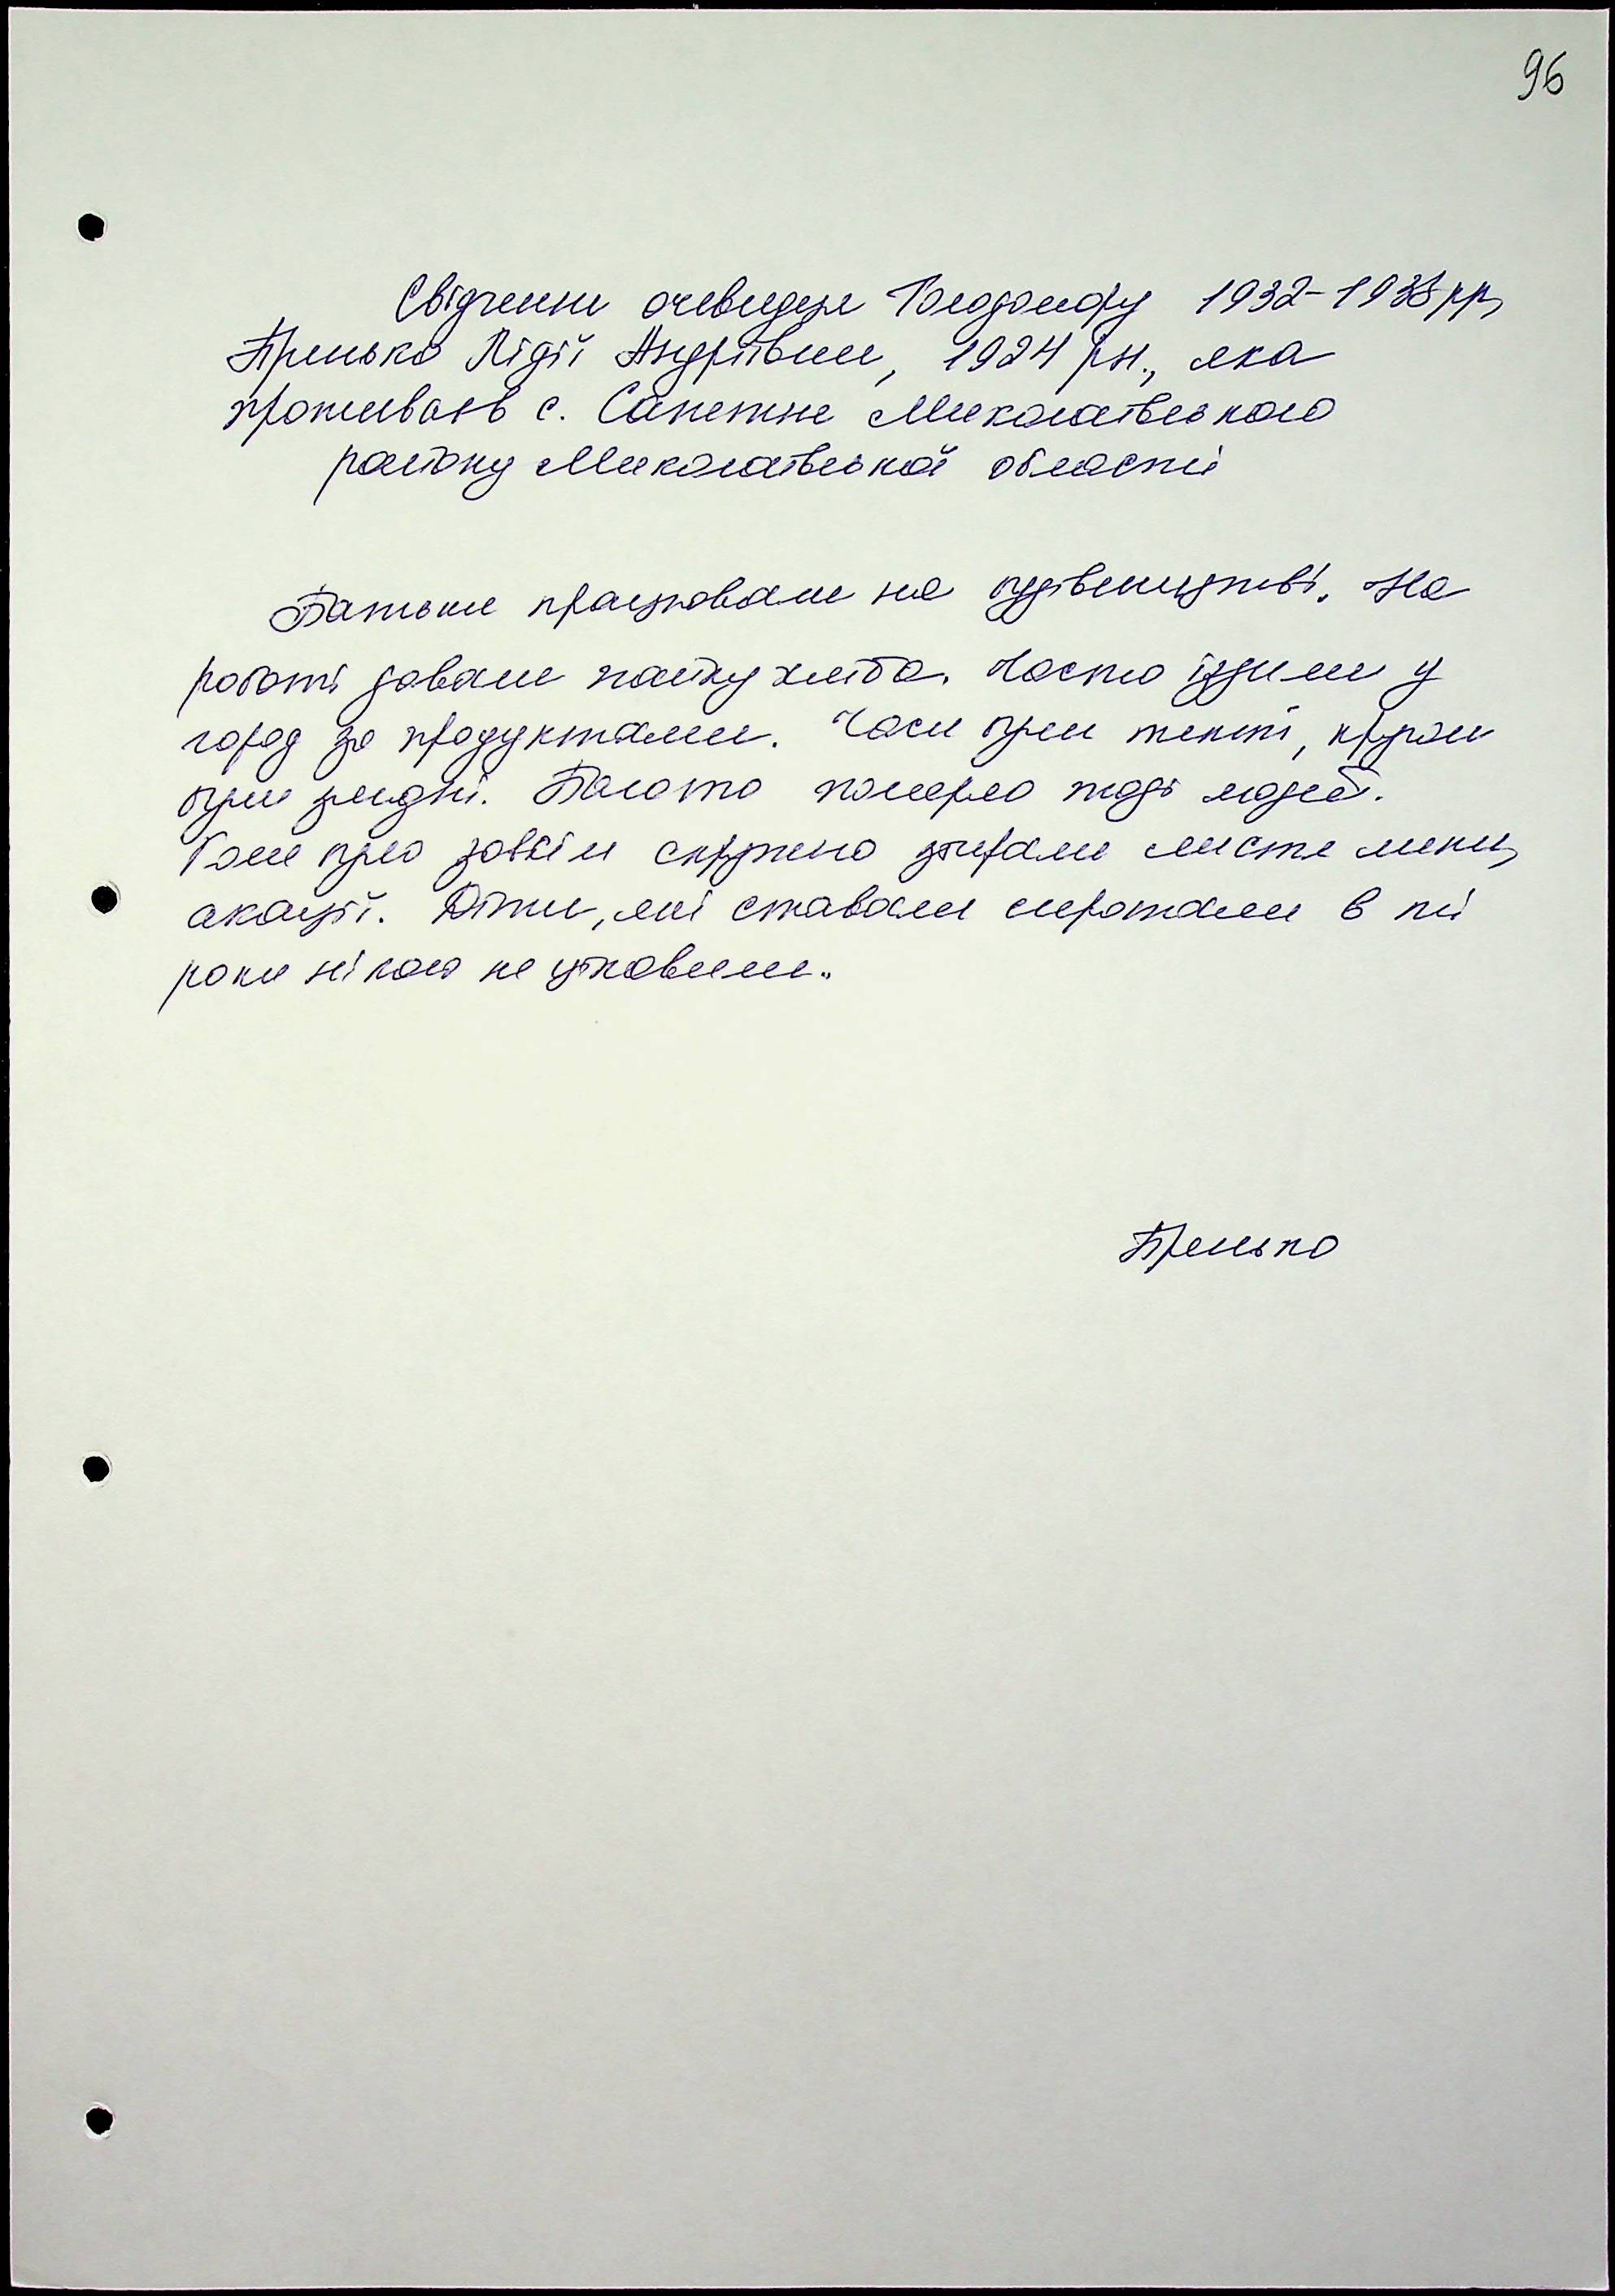 96
Свідчення очевидця Голодомору 1932-1933 рр,
Лідії Андріївни, 1924 р.н., яка
проживає в с. Миколаївського
району Миколаївської області
Батьки працювали на будівництві. На
роботі давали пайку хліба. Часто їздили у
город за продуктами. Часи були тяжкі, кругом
були злидні. Багато померло тоді людей.
Коли було зовсім скрутно збирали листя липи,
акації. Діти, які ставали сиротами в ті
роки нікого не цікавили.